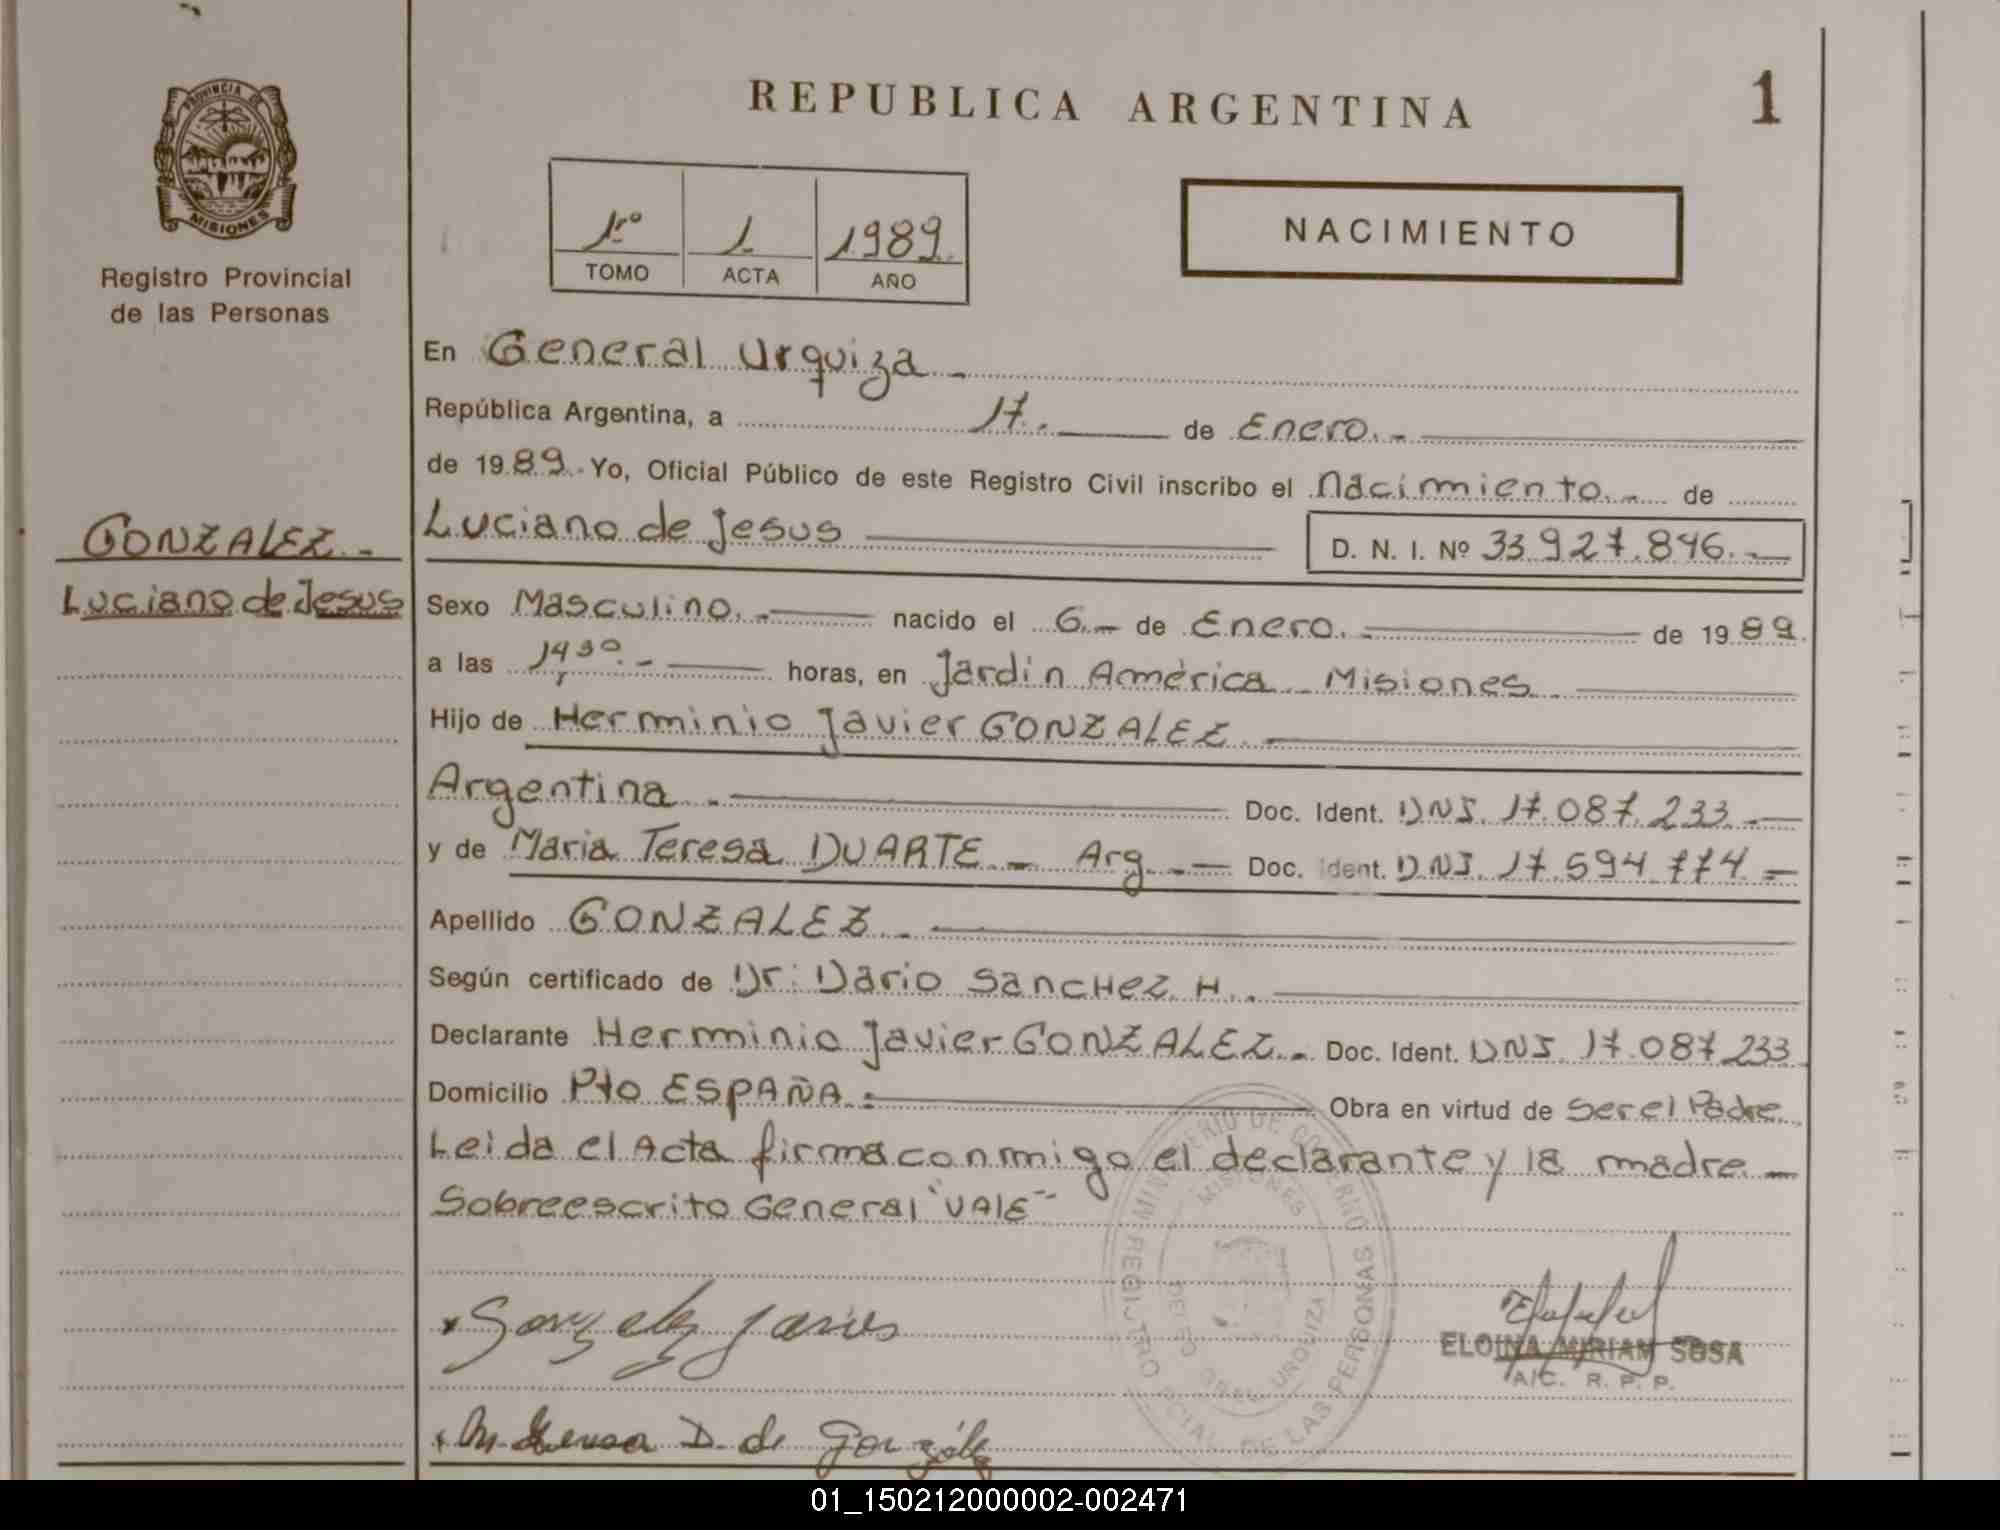 REPUBLICA ARGENTINA
1
PROVINCIA DE
MISIONES
Registro Provincial
de las Personas
1º
TOMO
1
ACTA
1989
AÑO
NACIMIENTO
En General Urquiza
República Argentina, a 17 de Enero
de 1989 Yo, Oficial Público de este Registro Civil inscribo el nacimiento de
GONZALEZ
Luciano de Jesus
Luciano de Jesus D. N. I. Nº 33.927.846
Sexo Masculino nacido el 6 de Enero de 1989
a las 14,30 horas, en Jardin América Misiones
Hijo de Herminio Javier GONZALEZ
Argentina Doc. Ident. DNI. 17.087.233
y de Maria Teresa DUARTE - Arg. Doc. Ident. DNI. 17.594.774
Apellido GONZALEZ
Según certificado de Dr: Dario Sanchez H.
Declarante Herminio Javier GONZALEZ Doc. Ident. DNI. 17.087.233
Domicilio Pto ESPAÑA Obra en virtud de ser el Padre
Leida el Acta firma conmigo el declarante y la madre
Sobreescrito General "VALE"
MINISTERIO DE GOBIERNO
MISIONES
REGISTRO PCIAL. DE LAS PERSONAS
GRAL. URQUIZA
Gonzalez Javier
ELOINA MIRIAM SOSA
A/C. R. P. P.
M. Teresa D. de González
01_150212000002-002471